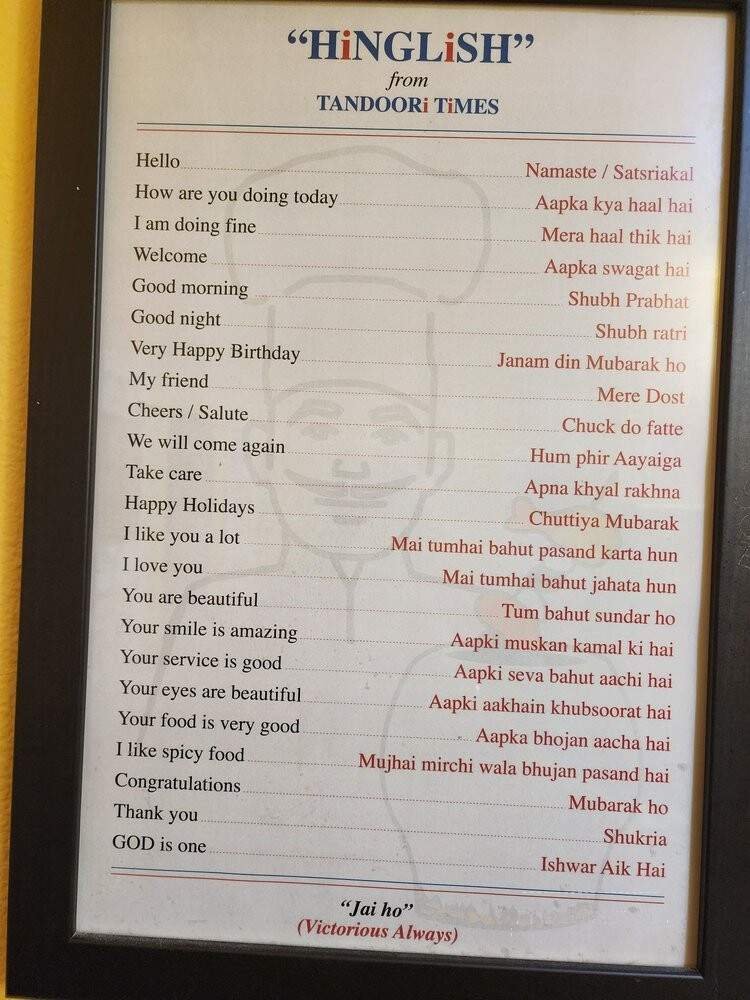 “HiNGLiSH”
from
TANDOORi TiMES
Hello Namaste / Satsriakal
How are you doing today Aapka kya haal hai
I am doing fine Mera haal thik hai
Welcome Aapka swagat hai
Good morning Shubh Prabhat
Good night Shubh ratri
Very Happy Birthday Janam din Mubarak ho
My friend Mere Dost
Cheers / Salute Chuck do fatte
We will come again Hum phir Aayaiga
Take care Apna khyal rakhna
Happy Holidays Chuttiya Mubarak
I like you a lot Mai tumhai bahut pasand karta hun
I love you Mai tumhai bahut jahata hun
You are beautiful Tum bahut sundar ho
Your smile is amazing Aapki muskan kamal ki hai
Your service is good Aapki seva bahut aachi hai
Your eyes are beautiful Aapki aakhain khubsoorat hai
Your food is very good Aapka bhojan aacha hai
I like spicy food Mujhai mirchi wala bhujan pasand hai
Congratulations Mubarak ho
Thank you Shukria
GOD is one Ishwar Aik Hai
“Jai ho”
(Victorious Always)